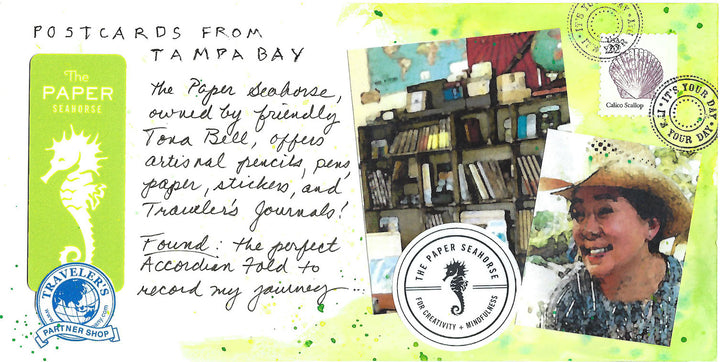 POSTCARDS FROM
TAMPA BAY
The
PAPER
SEAHORSE
the Paper Seahorse,
owned by friendly
Tona Bell, offers
artisnal pencils, pens
paper, stickers, and
Traveler's Journals!
Found: the perfect
Accordian Fold to
record my journey
TRAVELER'S
PARTNER SHOP
THE PAPER SEAHORSE
FOR CREATIVITY + MINDFULNESS
IT'S YOUR DAY
22
Calico Scallop
IT'S YOUR DAY
IT'S YOUR DAY